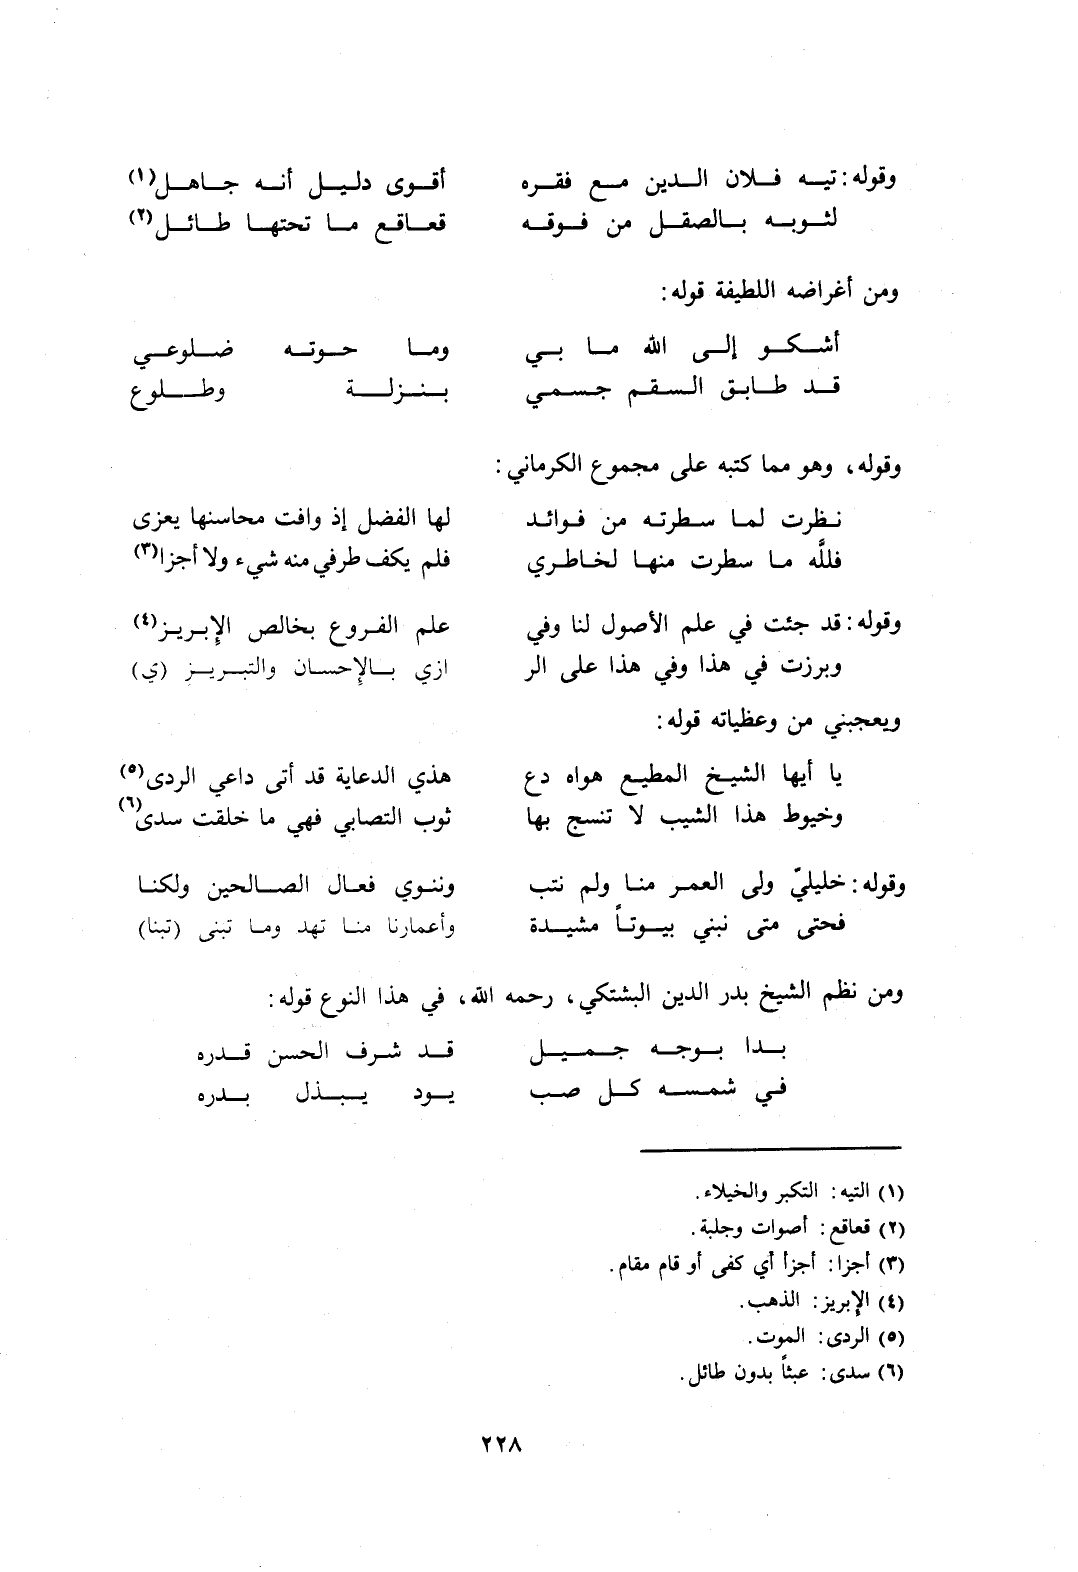 وقوله: تيه فلان الدين مع فقره أقوى دليل أنه جاهل(١)
لثوبه بالصقل من فوقه قعاقع ما تحتها طائل(٢)
ومن أغراضه اللطيفة قوله:
أشكو إلى الله ما بي وما حوته ضلوعي
قد طابق السقم جسمي بنزلة وطلوع
وقوله، وهو مما كتبه على مجموع الكرماني:
نظرت لما سطرته من فوائد لها الفضل إذ وافت محاسنها يعزى
فللَّه ما سطرت منها لخاطري فلم يكف طرفي منه شيء ولا أجزا(٣)
وقوله: قد جئت في علم الأصول لنا وفي علم الفروع بخالص الإبريز(٤)
وبرزت في هذا وفي هذا على الر ازي بالإحسان والتبريز (ي)
ويعجبني من وعظياته قوله:
يا أيها الشيخ المطيع هواه دع هذي الدعاية قد أتى داعي الردى(٥)
وخيوط هذا الشيب لا تنسج بها ثوب التصابي فهي ما خلقت سدى(٦)
وقوله: خليليّ ولى العمر منا ولم نتب وننوي فعال الصالحين ولكنا
فحتى متى نبني بيوتاً مشيدة وأعمارنا منا تهد وما تبنى (تبنا)
ومن نظم الشيخ بدر الدين البشتكي، رحمه الله، في هذا النوع قوله:
بدا بوجه جميل قد شرف الحسن قدره
في شمسه كل صب يود يبذل بدره
(١) التيه: التكبر والخيلاء.
(٢) قعاقع: أصوات وجلبة.
(٣) أجزا: أجزأ أي كفى أو قام مقام.
(٤) الإبريز: الذهب.
(٥) الردى: الموت.
(٦) سدى: عبثاً بدون طائل.
٢٢٨